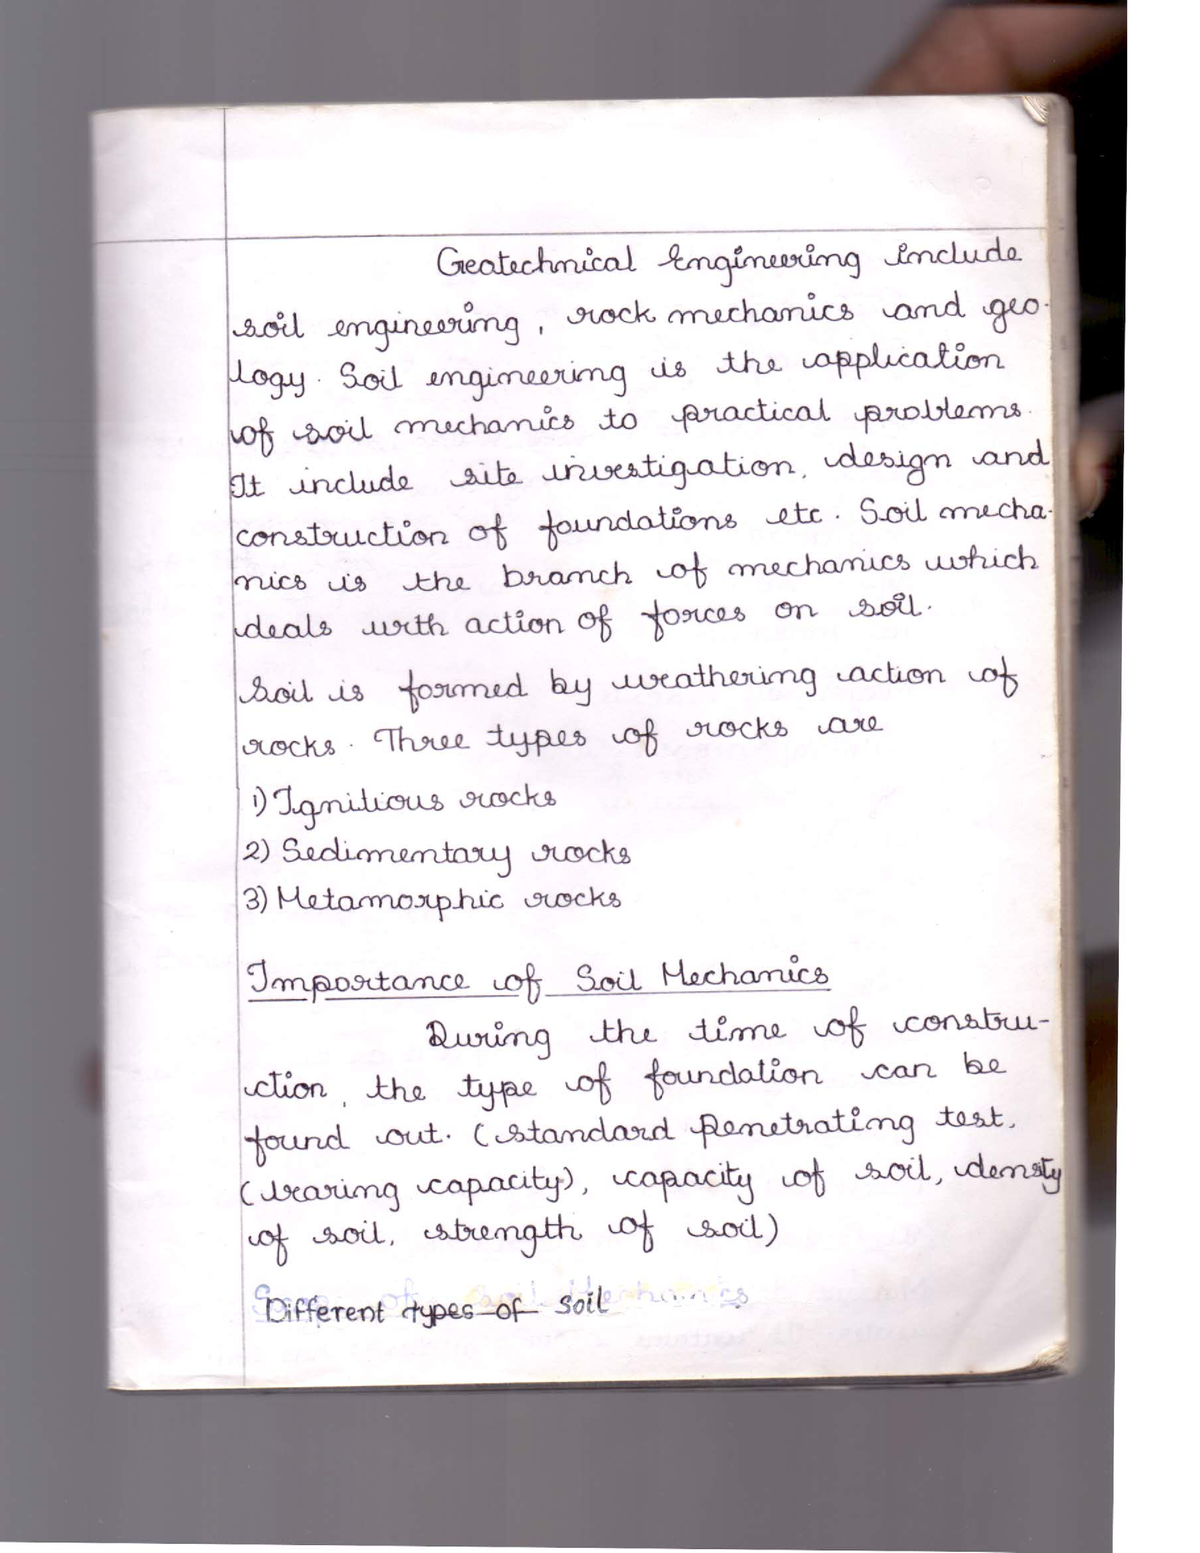 Geotechnical Engineering include
soil engineering, rock mechanics and geo-
logy. Soil engineering is the application
of soil mechanics to practical problems.
It include site investigation, design and
construction of foundations etc. Soil mecha-
nics is the branch of mechanics which
deals with action of forces on soil.
Soil is formed by weathering action of
rocks. Three types of rocks are
1) Ignitious rocks
2) Sedimentary rocks
3) Metamorphic rocks
Importance of Soil Mechanics
During the time of constru-
ction, the type of foundation can be
found out. (standard penetrating test,
(bearing capacity), capacity of soil, densty
of soil, strength of soil)
Different types of soil